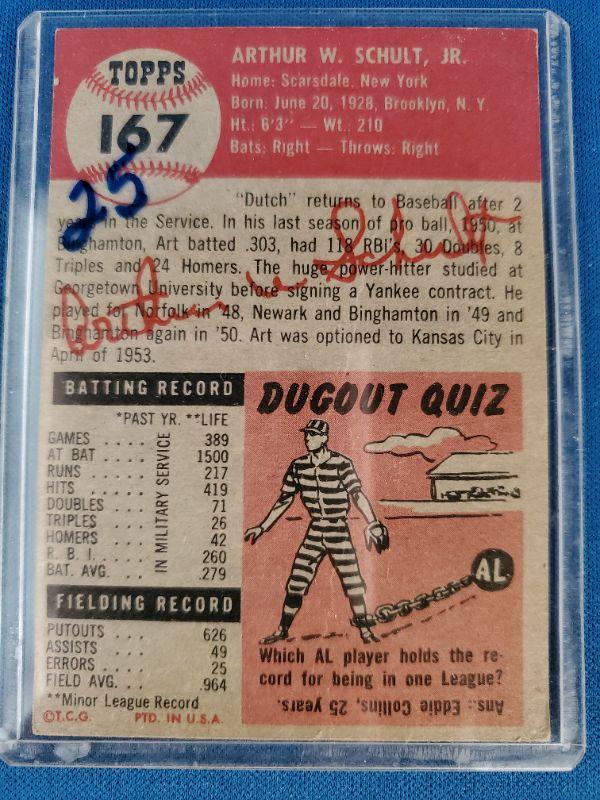 TOPPS
167
25
ARTHUR W. SCHULT, JR.
Home: Scarsdale, New York
Born: June 20, 1928, Brooklyn, N. Y.
Ht.: 6'3" — Wt.: 210
Bats: Right — Throws: Right
"Dutch" returns to Baseball after 2
years in the Service. In his last season of pro ball, 1950, at
Binghamton, Art batted .303, had 118 RBI's, 30 Doubles, 8
Triples and 24 Homers. The huge power-hitter studied at
Georgetown University before signing a Yankee contract. He
played for Norfolk in '48, Newark and Binghamton in '49 and
Binghamton again in '50. Art was optioned to Kansas City in
April of 1953.
Arthur W Schult
BATTING RECORD
*PAST YR. **LIFE
GAMES .... 389
AT BAT .... 1500
RUNS ..... 217
HITS ..... 419
DOUBLES ... 71
TRIPLES ... 26
HOMERS ... 42
R. B. I. ... 260
BAT. AVG. ... .279
IN MILITARY SERVICE
FIELDING RECORD
PUTOUTS ... 626
ASSISTS ... 49
ERRORS ... 25
FIELD AVG. ... .964
**Minor League Record
©T.C.G. PTD. IN U.S.A.
DUGOUT QUIZ
AL
Which AL player holds the re-
cord for being in one League?
Ans.: Eddie Collins, 25 years.